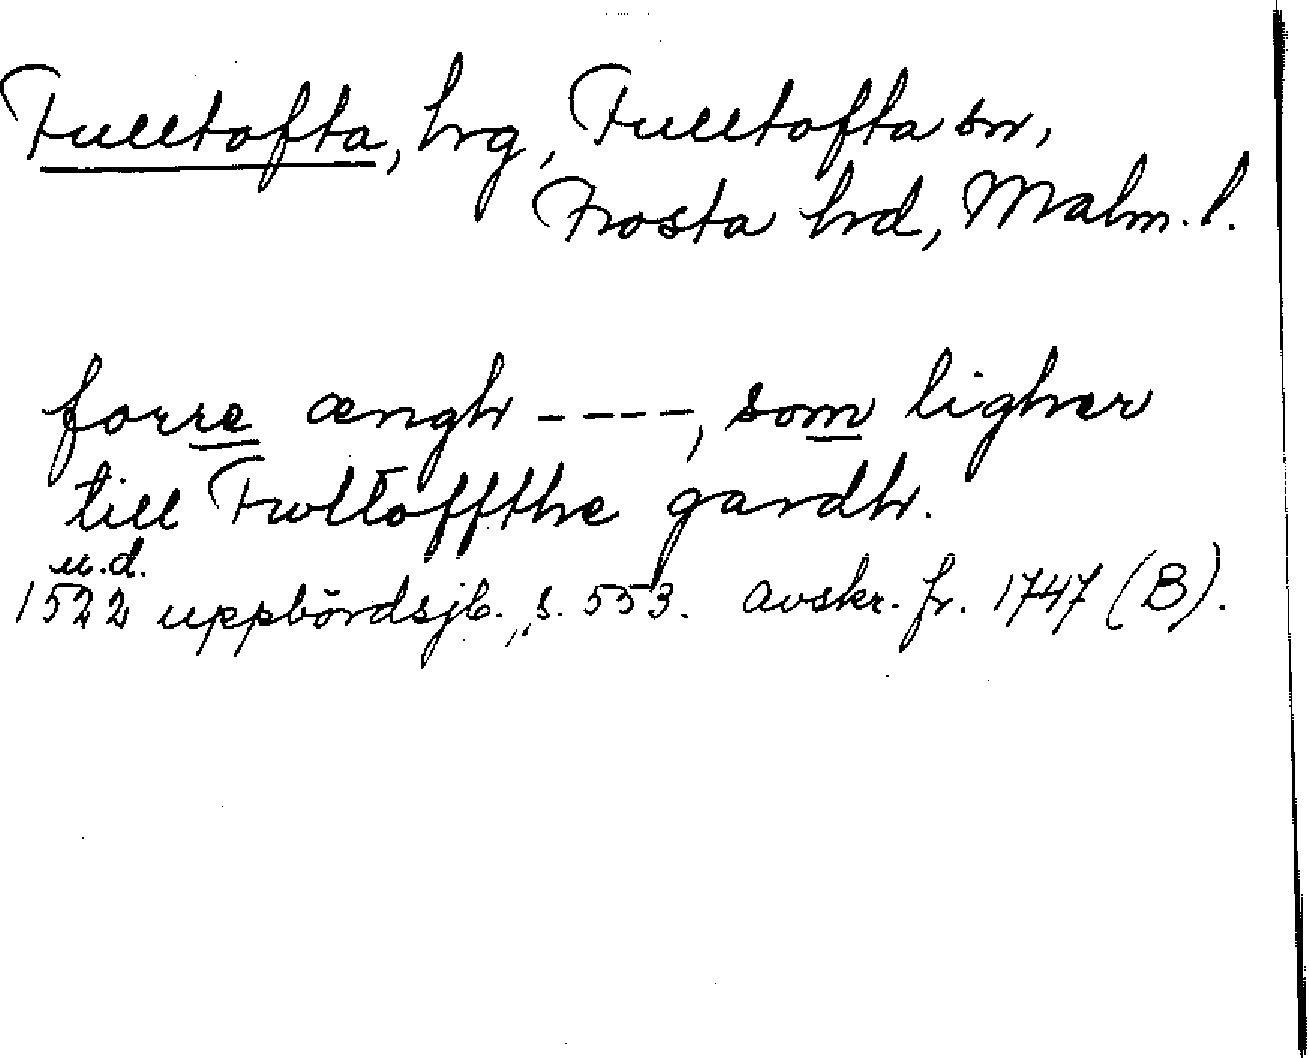 Fulltofta, hrg, Fulltofta sn,
Frosta hrd, Malm. l.
forre ængh ----, som ligher
till Fwltoffthe gardh.
u.d.
1522 uppbördsjb., s. 553. avskr. fr. 1747 (B).